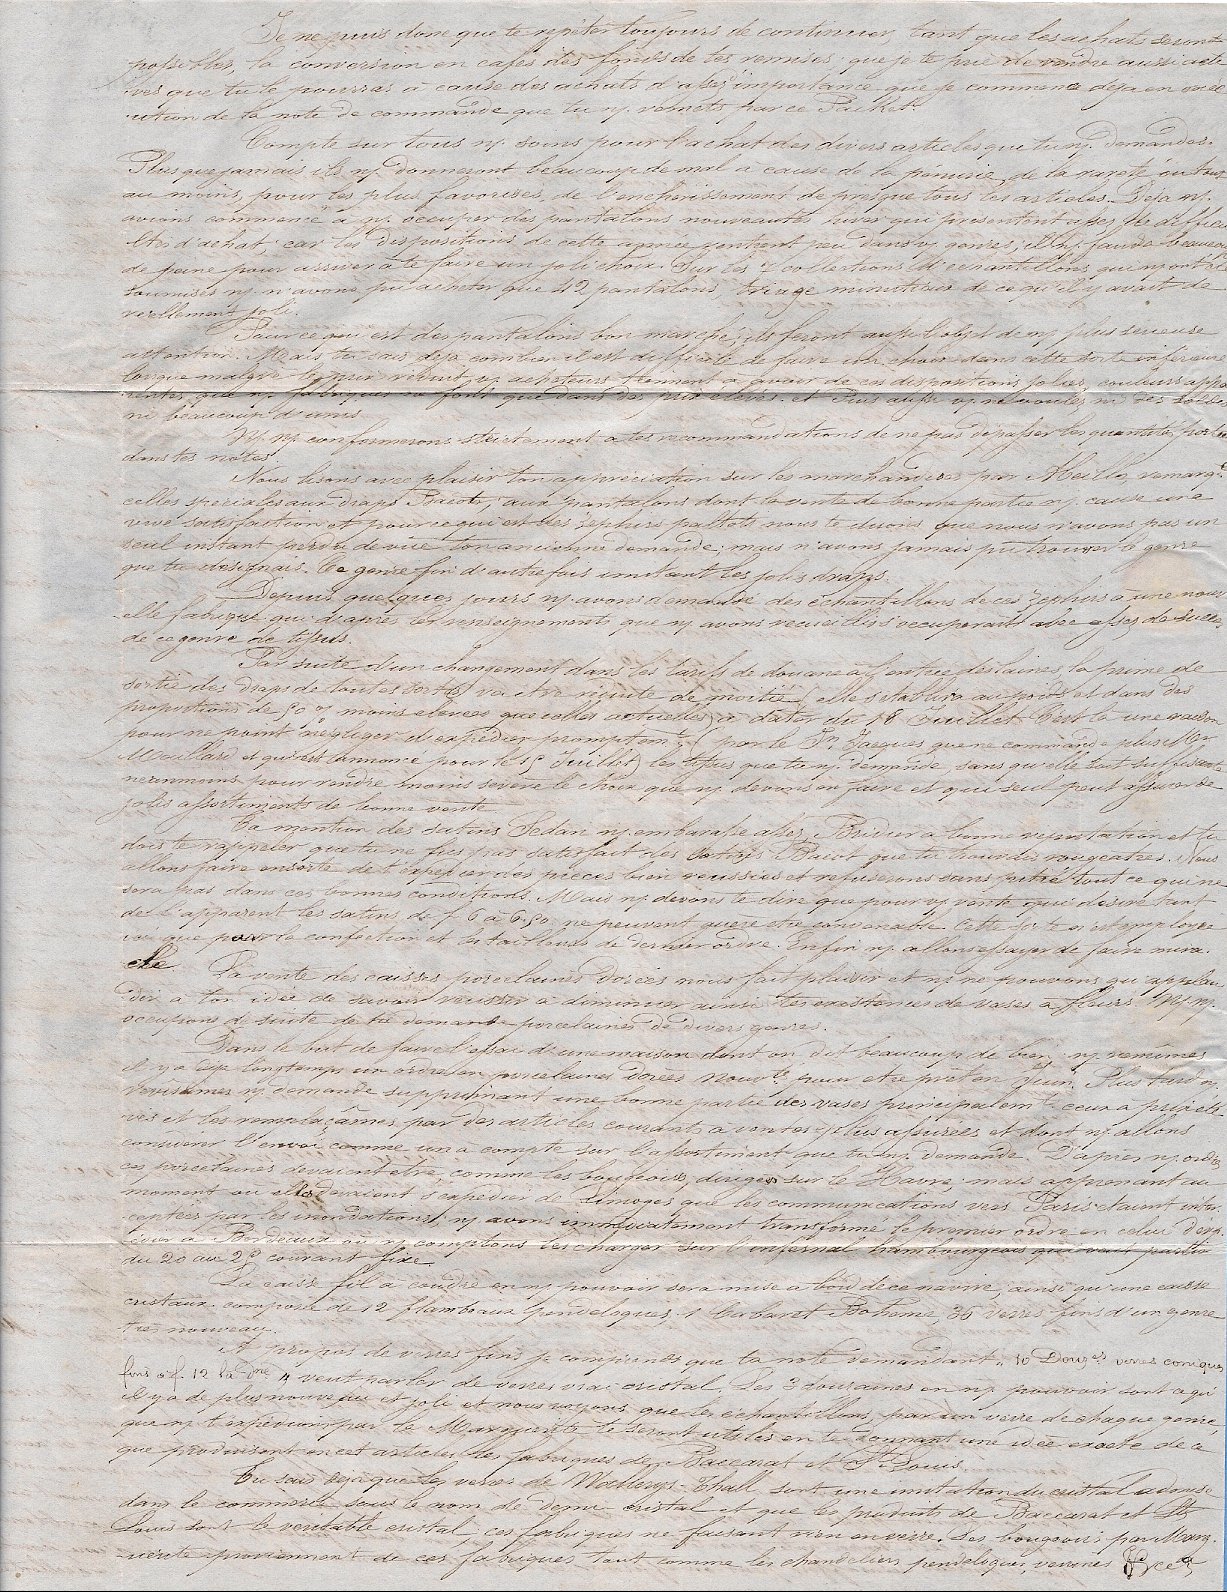 Je ne puis donc que te répéter toujours de continuer, tant que les achats seront
possibles, la conversion en cafés des fonds de tes remises, que je te prie de rendre aussi acti
ves que tu le pourras à cause des achats d'assez d'importance que je commence déjà en exé
cution de la note de commande que tu ns. remets par ce Packet.
Compte sur tous ns. soins pour l'achat des divers articles que tu ns. demandes.
Plus que jamais ils ns. donneront beaucoup de mal à cause de la pénurie, de la rareté ou tout
au moins, pour les plus favorisés, de l'enchérissement de presque tous les articles. Déjà ns.
avions commencé à ns. occuper des pantalons nouveautés qui présentent assez de difficu
ltés d'achat, car les dispositions de cette année rentrent peu dans vs. genres; il ns. faudra beaucoup
de peine pour arriver à te faire un joli choix. Sur les 7 collections d'échantillons qui ns. ont été
soumises ns. n'avons pu acheter que 42 pantalons, triage minutieux de ce qu'il y avait de
réellement joli.
Pour ce qui est des pantalons bon marché, ils feront aussi l'objet de ns. plus sérieuse
attention. Mais tu sais déjà combien il est difficile de faire un choix dans cette sorte inférieure
lorsque malgré le prix réduit vs. acheteurs tiennent à avoir de ces dispositions jolies, couleurs appa
rentes, que ns. fabriques ne font que dans des prix élevés. et Puis aussi vs. ne voulez ni des
ni beaucoup d'unis.
Ns. ns. conformerons strictement à tes recommandations de ne pas dépasser les quantités portées
dans tes notes.
Nous lisons avec plaisir ton appréciation sur les marchandises par Meillo, remarqt
celles spéciales aux draps Bacot, aux pantalons dont la vente de bonne partie ns. cause une
vive satisfaction et pour ce qui est des zéphirs paltots nous te dirons que nous n'avons pas un
seul instant perdu de vue ton ancienne demande; mais n'avons jamais pu trouver le genre
que tu désignais. Ce genre fin d'autrefois imitant les jolis draps.
Depuis quelques jours ns. avons demandé des échantillons de ces zéphirs à une nouv
elle fabrique qui d'après les renseignements que ns. avons recueillis s'occuperait avec assez de succès
de ce genre de tissus.
Par suite d'un changement dans les tarifs de douane à l'entrée des laines, la prime de
sortie des draps de toutes sortes va être réduite de moitié (elle s'établira au poids et dans des
proportions de 50 % moins élevées que celles actuelles) à dater du 18 Juillet. C'est là une raison
pour ne point négliger d'expédier promptemt. (par le St. Jacques que ne commande plus Mr
Maillard et qui est annoncé pour le 15 Juillet) les tissus que tu ns. demande, sans qu'elle soit suffisante
néanmoins pour rendre moins sévère le choix que ns. devons en faire et qui seul peut assurer de
jolis assortiments de bonne vente.
Ta mention des satins Sedan ns. embarasse assez. Bridier a bonne réputation et tu
dois te rappeler que tu ne fus pas satisfait des satins Bacot que tu trouvais rougeâtres. Nous
allons faire ensorte de t'expédier des pièces bien réussies et refuserons sans pitié tout ce qui ne
sera pas dans ces bonnes conditions. Mais ns. devons te dire que pour vs. vente qui désire tant
de l'apparent les satins de f. 6 à 6.50 ne peuvent guère être convenable. Cette sorte n'est employée
ici que pour la confection et les tailleurs de dernier ordre. Enfin ns. allons essayer de faire mira
cle. La vente des caisses porcelaines dorées nous fait plaisir et ns. ne pouvons qu'applau
dir à ton idée de savoir réussir à diminuer ainsi les existences de vases à fleurs. Ns. ns.
occupons de suite de ta demande porcelaines de divers genres.
Dans le but de faire l'essai d'une maison dont on dit beaucoup de bien, ns. remîmes
il y a déjà longtemps un ordre en porcelaines dorées nouvte. pour être prêt en Juin. Plus tard ns.
revisâmes ns. demande supprimant une bonne partie des vases principalemt. ceux à prix éle
vés et les remplaçâmes par des articles courant à ventes plus assurées et dont ns. allons
convenir l'envoi comme un à compte sur l'assortiment que tu ns. demande. D'après ns. ordre
ces porcelaines devaient être, comme les bougeoirs, dirigées sur le Havre; mais apprenant au
moment où elles devaient s'expédier de Limoges que les communications vers Paris étaient inter
ceptées par les inondations, ns. avons immédiatement transformé le premier ordre en celui d'exp.
édier à Bordeaux où ns. comptons les charger sur l'infernal hambourgeois qui veut partir
du 20 au 25 courant fixe.
La caisse fil à coudre en ns. pouvoir sera mise à bord de ce navire, ainsi qu'une caisse
cristaux composée de 12 flambeaux pendeloques, 1 Cabaret Bohème, 36 verres fins d'un genre
très nouveau.
A propos de verres fins je comprends que ta note demandant "10 Douzes verres coniques
fins à f. 12 la Dne" veut parler de verres vrai cristal. Les 3 douzaines en ns. pouvoir sont ce qu'
il y a de plus nouveau et joli et nous voyons que les échantillons, par un verre de chaque genre,
que ns. t'expédions par le Marguerite te seront utiles en te donnant une idée exacte de ce
que produisent en cet article les fabriques de Baccarat et St. Louis.
Tu sais déjà que les verres de Walleurys-Thall sont une imitation du cristal
dans le commerce sous le nom de demi cristal et que les produits de Baccarat et St.
Louis sont le véritable cristal, ces fabriques ne faisant rien en verre. Les bougeoirs par Marg.
uerite proviennent de ces fabriques tout comme les chandeliers pendeloques, verrines